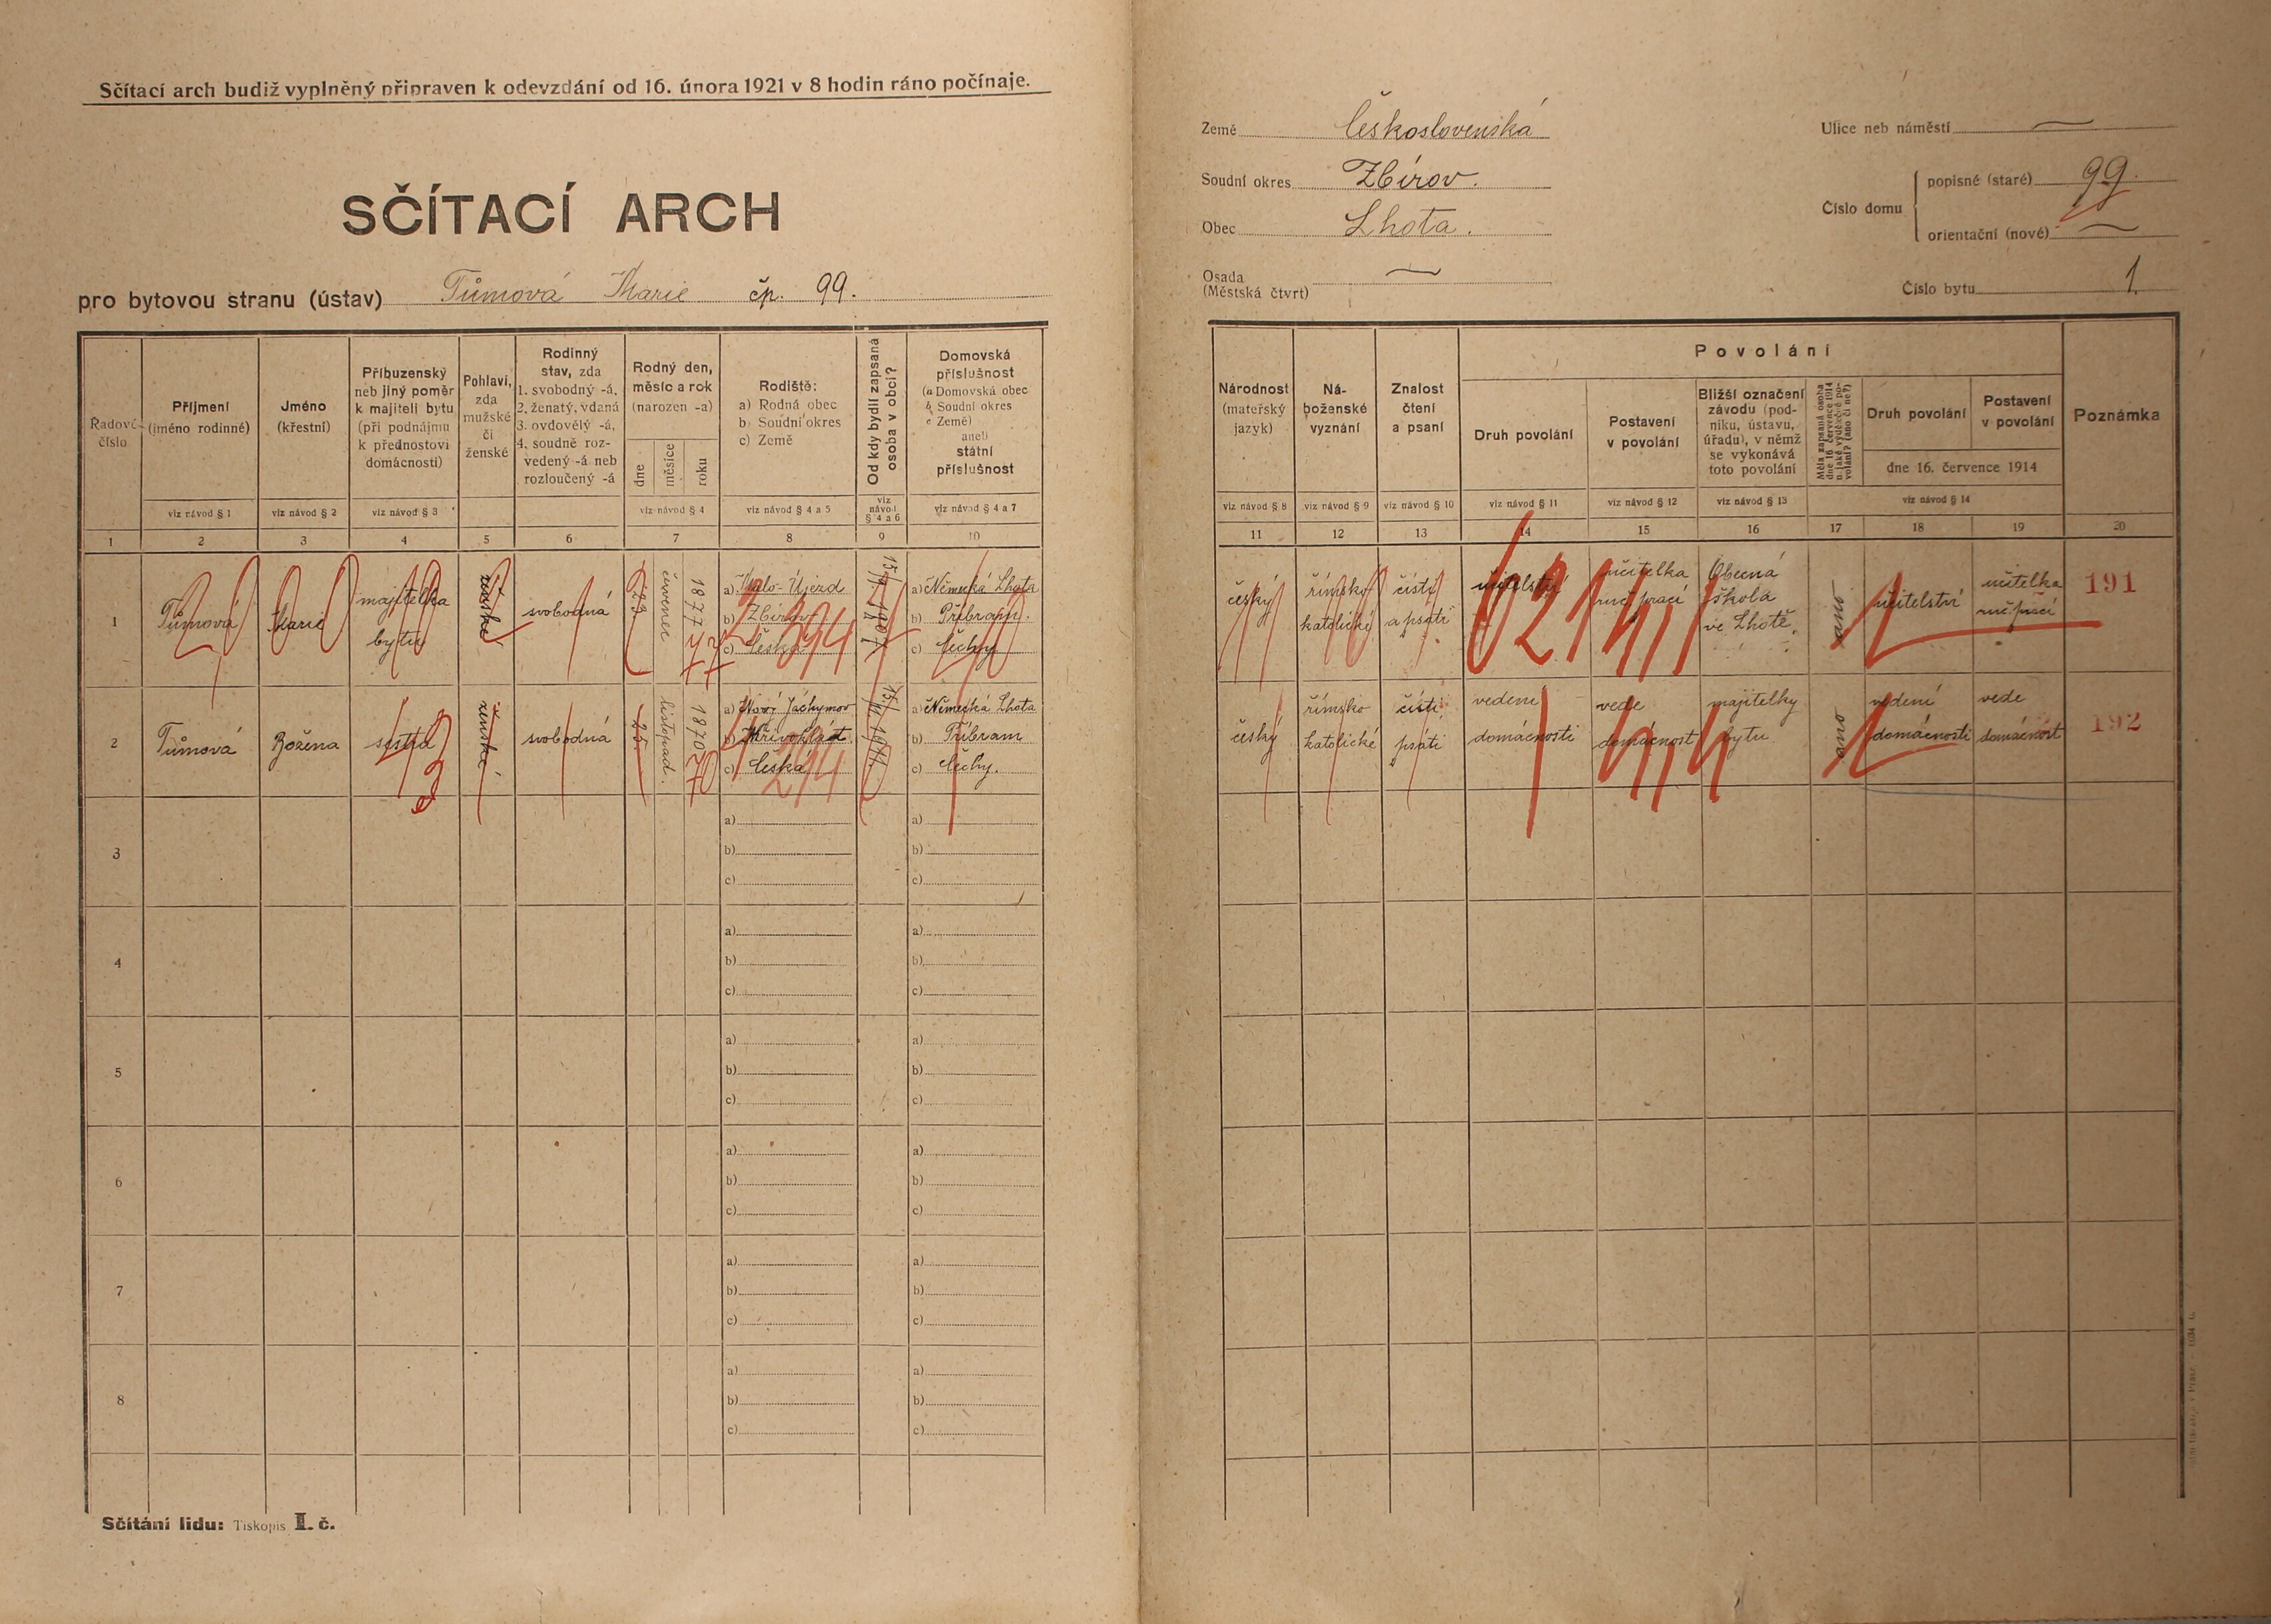 Sčítací arch budiž vyplněný připraven k odevzdání od 16. února 1921 v 8 hodin ráno počínaje.
SČÍTACÍ ARCH
pro bytovou stranu (ústav) Tůmová Marie čp. 99.
Řadové číslo
Příjmení
(jméno rodinné)
viz návod § 1
Jméno
(křestní)
viz návod § 2
Příbuzenský
neb jiný poměr
k majiteli bytu
(při podnájmu
k přednostovi
domácnosti)
viz návod § 3
Pohlaví,
zda
mužské
či
ženské
Rodinný
stav, zda
1. svobodný -á,
2. ženatý, vdaná
3. ovdovělý -á,
4. soudně roz-
vedený -á neb
rozloučený -á
Rodný den,
měsíc a rok
(narozen -a)
dne
měsíce
roku
viz návod § 4
Rodiště:
a) Rodná obec
b) Soudní okres
c) Země
viz návod § 4 a 5
Od kdy bydlí zapsaná
osoba v obci?
viz
návod
§ 4 a 6
Domovská
příslušnost
(a Domovská obec
b Soudní okres
c Země)
aneb
státní
příslušnost
viz návod § 4 a 7
1 2 3 4 5 6 7 8 9 10
1
Tůmová
Marie
majitelka
bytu
svobodná
23.
červenec
1877
77
a) Malo-Újezd
b) Zbirov
c) česká
394
a) Německá Lhota
b) Příbram.
c) Čechy
2
Tůmová
Božena
sestra
ženské
svobodná
25.
listopad.
1870
70
a) Nový Jáchymov
b) Křivoklát.
c) česká
294
a) Německá Lhota
b) Příbram
c) Čechy.
3
a)
b)
c)
a)
b)
c)
4
a)
b)
c)
a)
b)
c)
5
a)
b)
c)
a)
b)
c)
6
a)
b)
c)
a)
b)
c)
7
a)
b)
c)
a)
b)
c)
8
a)
b)
c)
a)
b)
c)
Sčítání lidu: Tiskopis I. č.
Země Československá
Soudní okres Zbirov.
Obec Lhota.
Osada
(Městská čtvrt)
Ulice neb náměstí
Číslo domu
popisné (staré) 99.
orientační (nové)
Číslo bytu 1.
Národnost
(mateřský
jazyk)
viz návod § 8
Ná-
boženské
vyznání
viz návod § 9
Znalost
čtení
a psaní
viz návod § 10
Povolání
Druh povolání
viz návod § 11
Postavení
v povolání
viz návod § 12
Bližší označení
závodu (pod-
niku, ústavu,
úřadu), v němž
se vykonává
toto povolání
viz návod § 13
Měla zapsaná osoba
dne 16. července 1914
nějaké výdělečné po-
volání? (ano či ne?)
Druh povolání
Postavení
v povolání
dne 16. července 1914
viz návod § 14
Poznámka
11 12 13 14 15 16 17 18 19 20
český
římsko
katolické
čísti
a psáti
učitelství
621
učitelka
ruč. prací
Obecná
škola
ve Lhotě.
ano
učitelství
učitelka
ruč. prací
191
český
římsko
katolické
čísti,
psáti
vedení
domácnosti
vede
domácnost
majitelky
bytu
ano
vedení
domácnosti
vede
domácnost
192